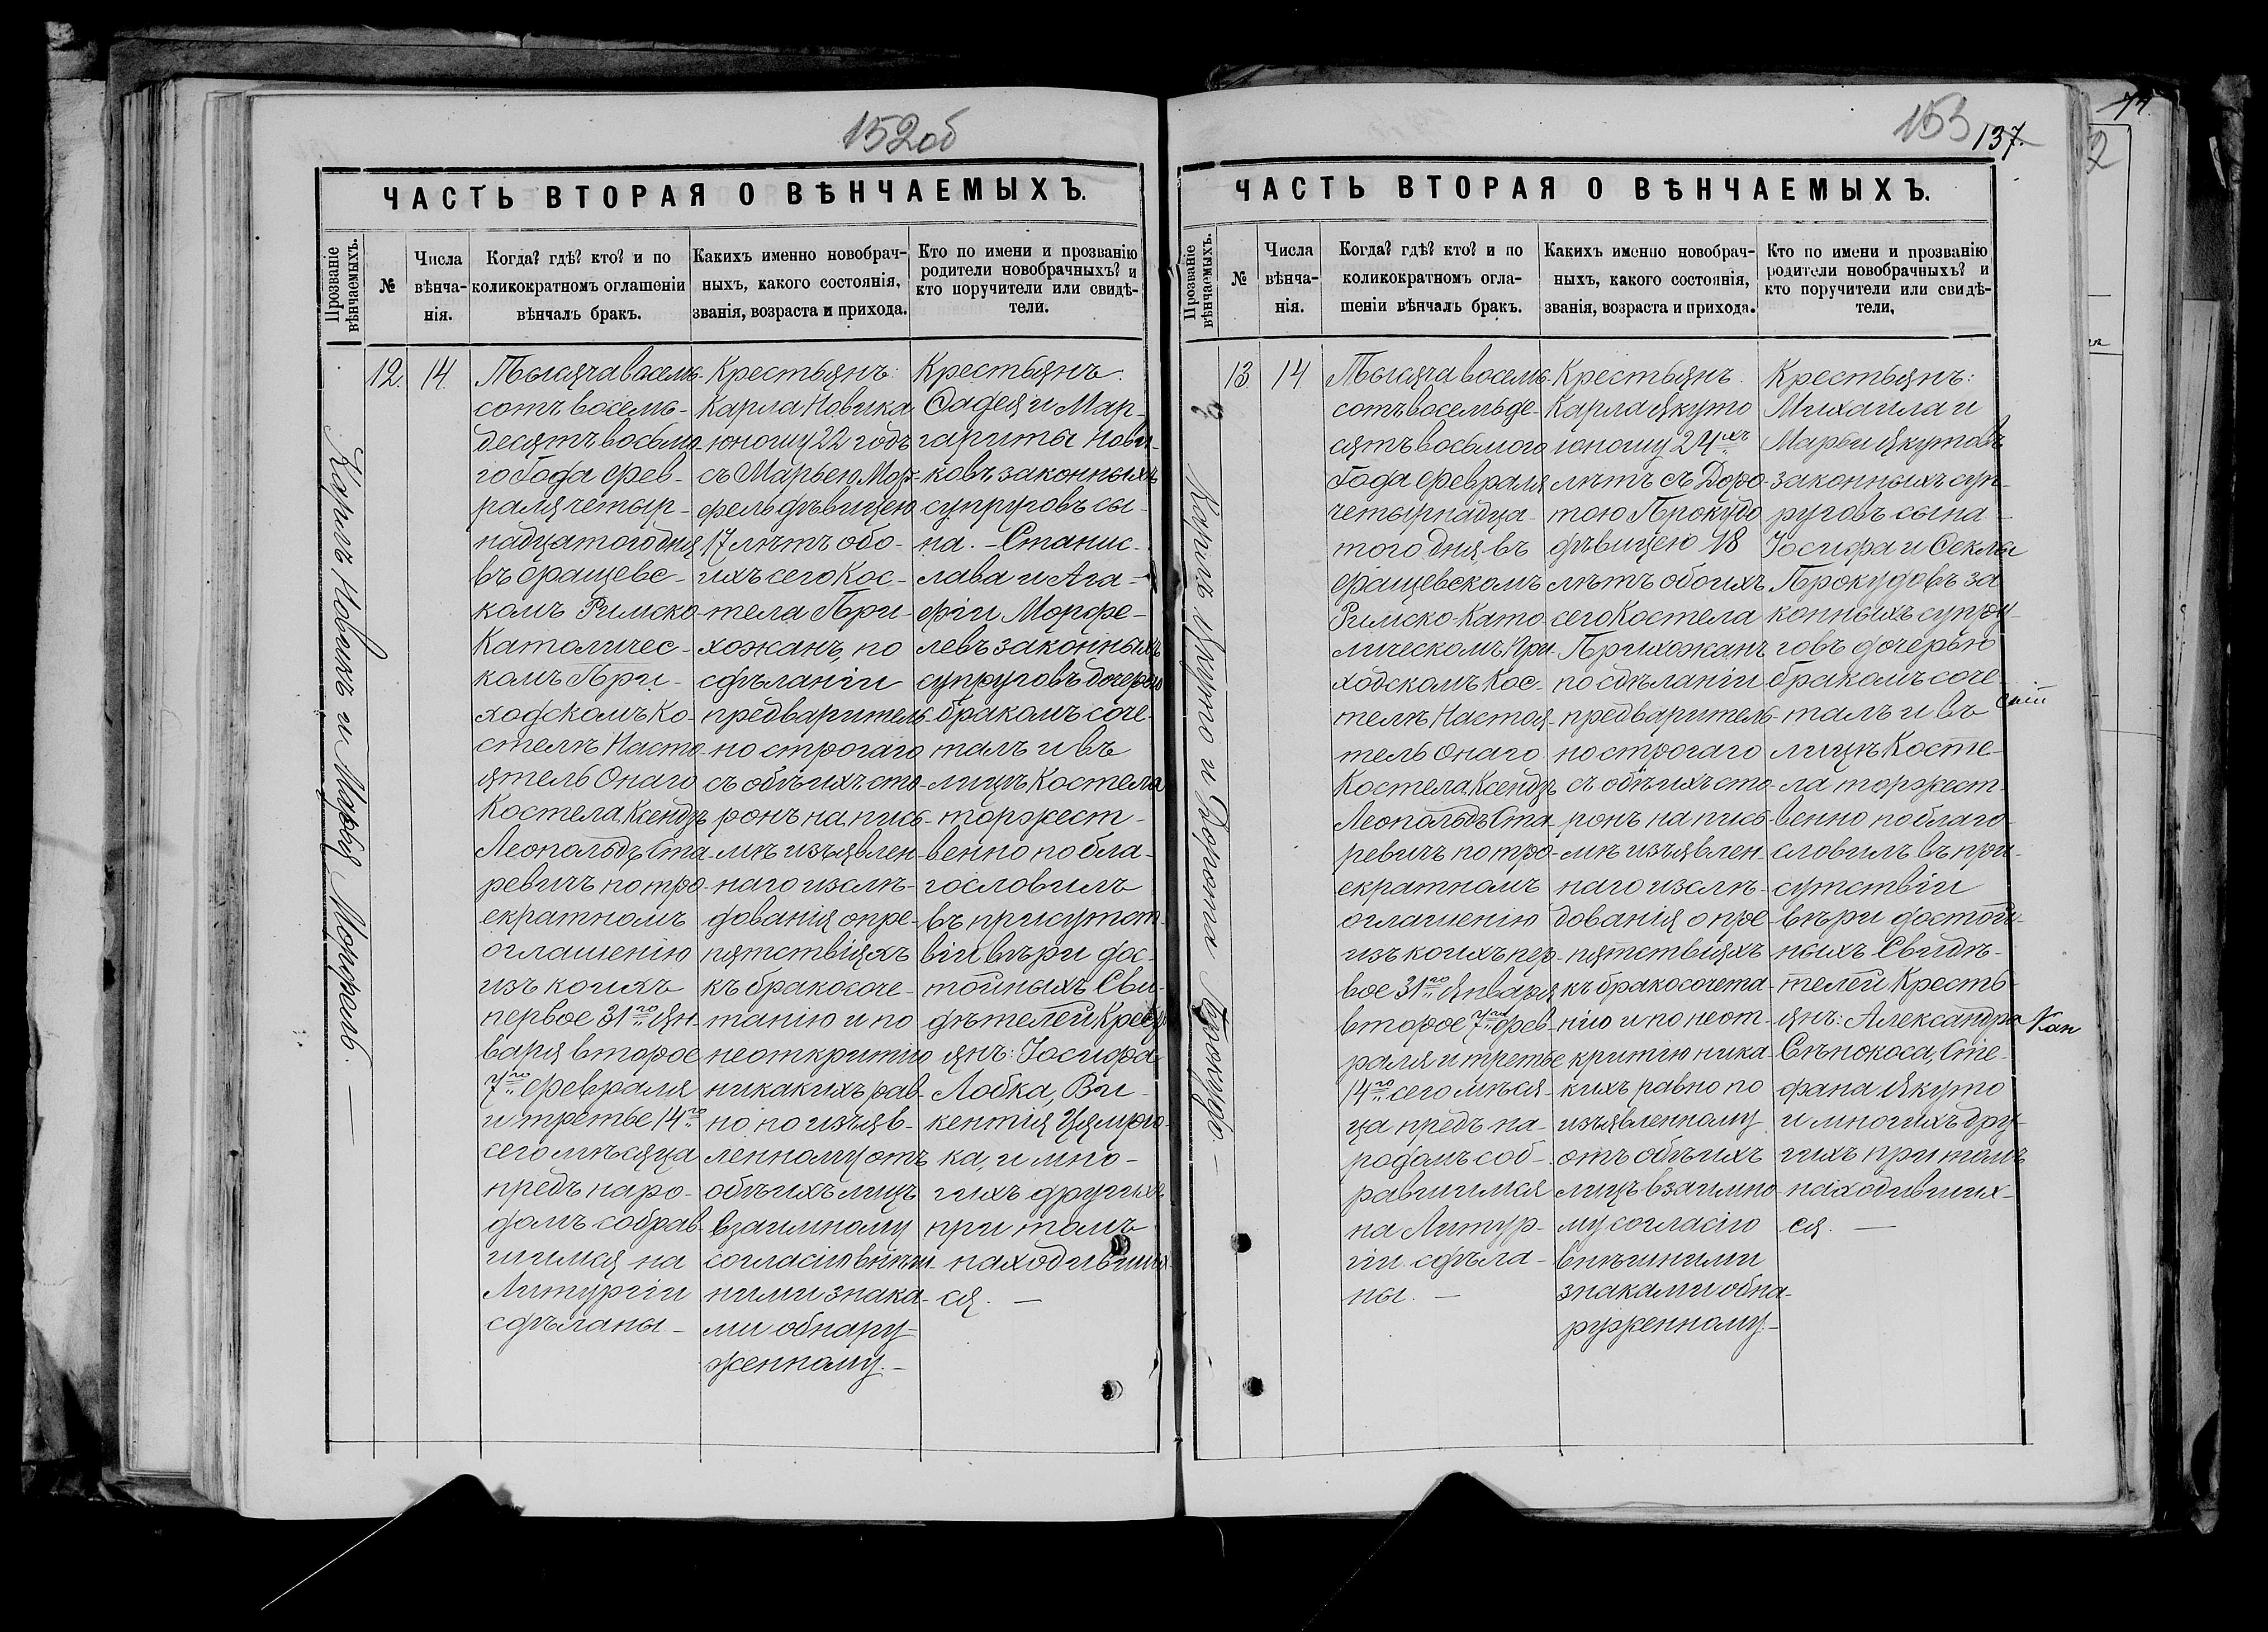 152об
ЧАСТЬ ВТОРАЯ О ВѢНЧАЕМЫХЪ.
Прозваніе вѣнчаемыхъ.
№
Числа вѣнча-
нія.
Когда? гдѣ? кто? и по
коликократномъ оглашеніи
вѣнчалъ бракъ.
Какихъ именно новобрач-
ныхъ, какого состоянія,
званія, возраста и прихода.
Кто по имени и прозванію
родители новобрачныхъ? и
кто поручители или свидѣ-
тели.
Карлъ Новикъ и Марья Морфель. —
12.
14.
Тысяча восемь-
сотъ восемь-
десятъ восьмо-
го Года фев-
раля четыр-
надцатого дня
въ Фащевс-
комъ Римско-
Католичес-
комъ При-
ходскомъ Ко-
стелѣ Насто
ятель Онаго
Костела Ксендзъ
Леопольдъ Ста-
ревичъ по тро-
екратномъ
оглашенію
изъ коихъ
первое 31го Ян-
варя второе
7го февраля
и третье 14го
сего мѣсяца
предъ наро-
домъ собрав-
шимся на
Литургіи
сдѣланы —
Крестьянъ:
Карла Новика
юношу 22 годъ
съ Марьею Мор-
фель дѣвицею
17 лѣтъ обо-
ихъ сего Кос-
тела При-
хожанъ, по
сдѣланіи
предваритель-
но строгаго
съ обѣихъ сто-
ронъ на пись-
мѣ изъявлен-
наго изслѣ-
дованія о пре-
пятствіяхъ
къ бракосоче-
танію и по
неоткритію
никакихъ рав-
но по изъяв-
ленному отъ
обѣихъ лицъ
взаимному
согласію внѣш-
ними знака-
ми обнару-
женному. —
Крестьянъ:
Фадея и Мар-
гариты Нови-
ковъ законныхъ
супруговъ сы-
на. — Станис-
лава и Ага-
фіи Морфе-
левъ законныхъ
супруговъ дочерью
бракомъ соче-
талъ и въ
лицѣ Костела
торжест-
венно по бла-
гословилъ
въ присутст-
віи вѣри дос-
тойныхъ Сви-
дѣтелей Кресть
янъ: Іосифа
Лобка, Ви-
кентія
ка, и мно-
гихъ другихъ
при томъ
находивших-
ся. —
153
137.
ЧАСТЬ ВТОРАЯ О ВѢНЧАЕМЫХЪ.
Прозваніе вѣнчаемыхъ.
№
Числа
вѣнча-
нія.
Когда? гдѣ? кто? и по
коликократномъ огла-
шеніи вѣнчалъ бракъ.
Какихъ именно новобрач-
ныхъ, какого состоянія,
званія, возраста и прихода.
Кто по имени и прозванію
родители новобрачныхъ? и
кто поручители или свидѣ-
тели.
Карлъ Якуто и Дорота Прокудо. —
13
14
Тысяча восемь-
сотъ восемьде-
сятъ восьмого
Года февраля
четырнадца-
того дня въ
Фащевскомъ
Римско-Като-
лическомъ При-
ходскомъ Кос-
телѣ Настоя-
тель Онаго
Костела Ксендзъ
Леопольдъ Ста-
ревичъ по тро-
екратномъ
оглашенію
изъ коихъ пер-
вое 31го Января
второе 7го фев-
раля и третье
14го сего мѣся-
ца предъ на-
родомъ соб-
равшимся
на Литур-
гіи сдѣла-
ны. —
Крестьянъ.
Карла Якуто
юношу 24хъ
лѣтъ съ Доро-
тою Прокудо
дѣвицею 18
лѣтъ обоихъ
сего Костела
Прихожанъ
по сдѣланіи
предваритель-
но строгаго
съ обѣихъ сто-
ронъ на пись-
мѣ изъявлен-
наго изслѣ-
дованія о пре-
пятствіяхъ
къ бракосочета-
нію и по неот-
критію ника-
кихъ равно по
изъявленному
отъ обѣихъ
лицъ взаимно-
му согласію
внѣшними
знаками обна-
руженному. —
Крестьянъ:
Михаила и
Марьи Якутовъ
законныхъ суп-
руговъ сына —
Іосифа и Феклы
Прокудовъ за
конныхъ супру-
говъ дочерью
бракомъ соче-
талъ и въ
лицѣ Косте-
ла торжест-
венно по благо-
словилъ въ при-
сутствіи
вѣри достой-
ныхъ Свидѣ-
телей Кресть-
янъ: Александра
Сѣнокоса, Сте-
фана Якуто
и многихъ дру-
гихъ при томъ
находивших-
ся. —